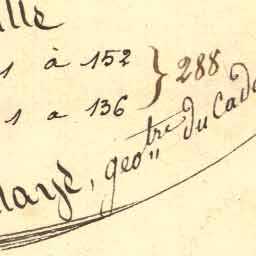 ille
1 à 152
1 a 136 } 288
laye, geo.tre du Cada